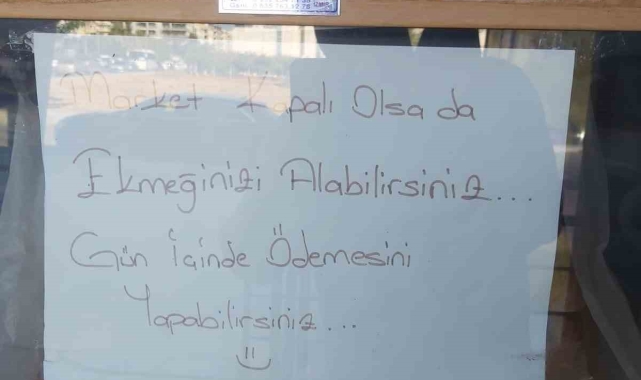 Market Kapalı Olsa da
Ekmeğinizi Alabilirsiniz...
Gün İçinde Ödemesini
Yapabilirsiniz...